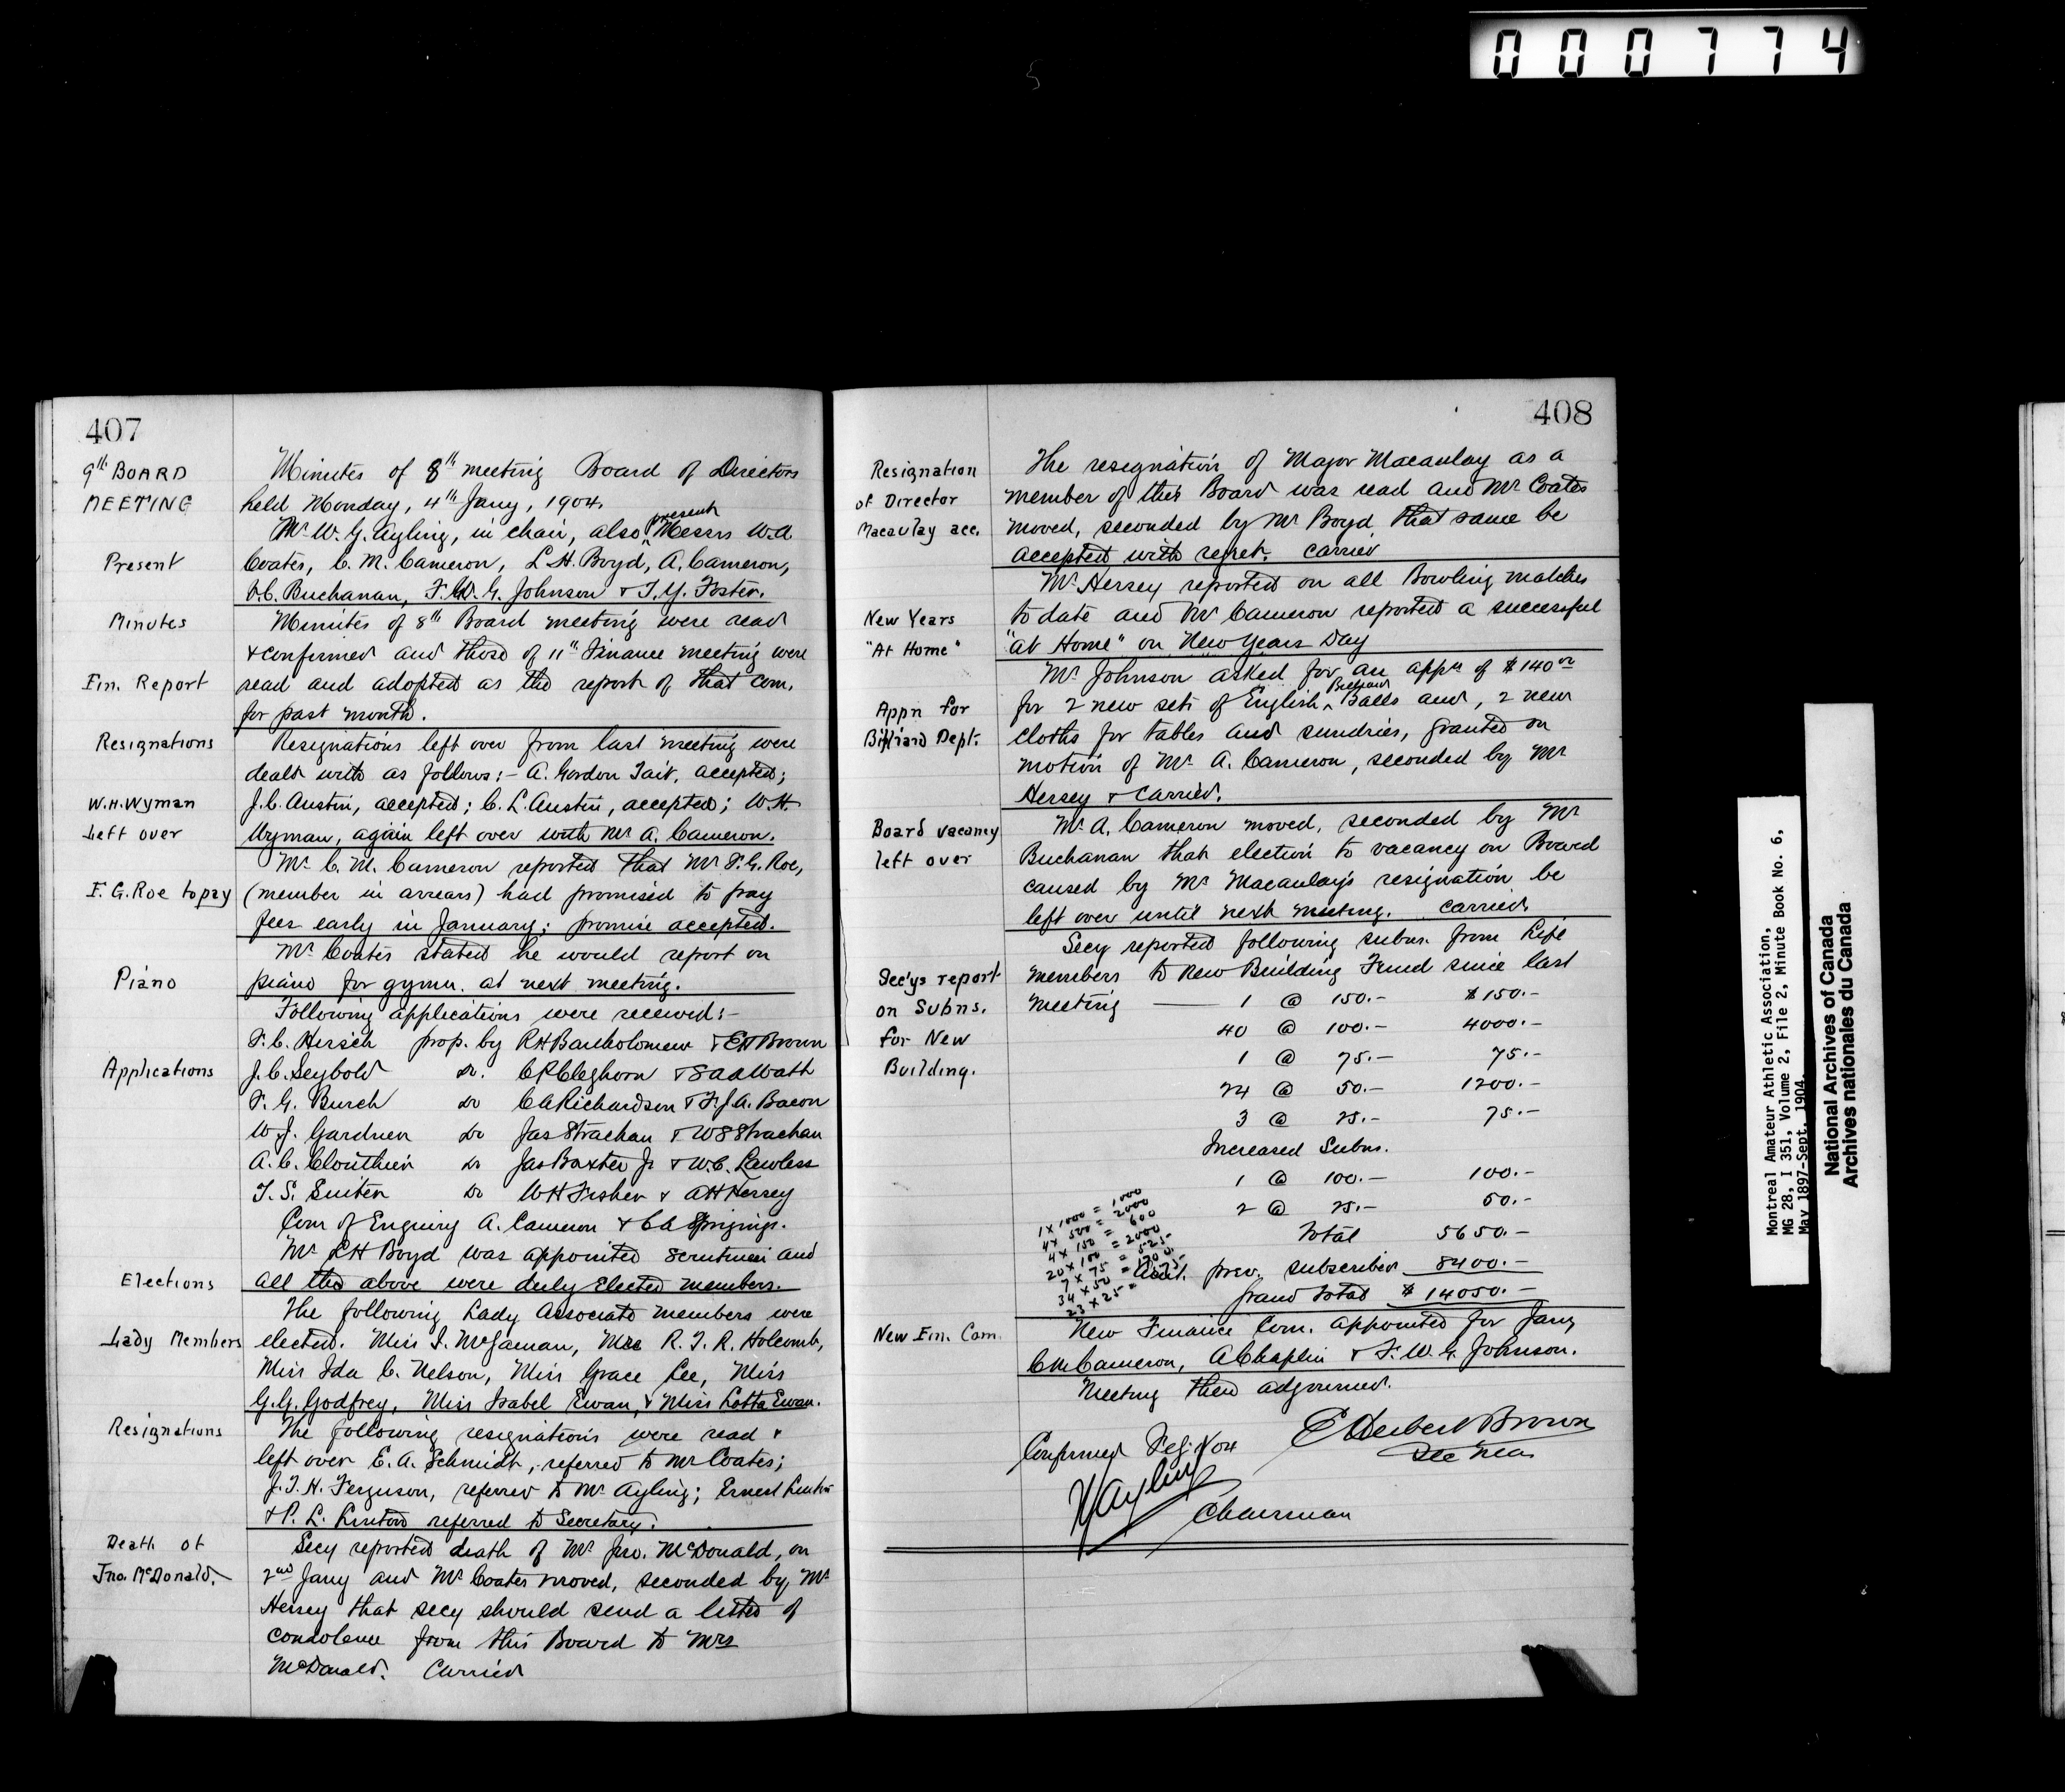 000774
407
9th BOARD MEETING
Minutes of 8th meeting Board of Directors
held Monday, 4th Jany, 1904.
Mr. W. G. Ayling, in chair, also present Messrs W.A.
Present
Coates, C. M. Cameron, L H. Boyd, A. Cameron,
Buchanan, F. W. G. Johnson & T. Y. Foster.
Minutes
Minutes of 8th Board meeting were read
& confirmed and those of 11th Finance meeting were
Fin. Report
read and adopted as the report of that com.
for past month.
Resignations
Resignations left over from last meeting were
dealt with as follows:- A. Gordon Tait, accepted;
W.H. Wyman
J. C. Austin, accepted; C. L. Austin, accepted; W. H.
Left over
Wyman, again left over with Mr A. Cameron.
Mr. C. M. Cameron reported that Mr F. G. Roe,
F. G. Roe to pay
(member in arrears) had promised to pay
fees early in January; promise accepted.
Mr Coates stated he would report on
Piano
piano for gymn. at next meeting.
Following applications were received:-
F. C. Hirsch prop. by RH Bartholomew & EH Brown
Applications
J. C. Seybold Do. CP Cleghorn &
F. G. Burch Do CA Richardson & F. J. A. Bacon
W. J. Gardner Do Jas Strachan & WS Strachan
A. C. Clouthier Do Jas Baxter Jr & W. C. Lawless
T. S. Suiter Do WH Fisher & AH Hersey
Com of Enquiry A. Cameron & CA Spriggings.
Mr LH Boyd was appointed scrutineer and
Elections
all the above were duly elected members.
The following Lady Associate members were
Lady Members
elected. Miss I. McJaman, Mrs R. T. R. Holcomb,
Miss Ida C. Nelson, Miss Grace Lee, Miss
G. G. Godfrey, Miss Isabel Ewan, & Miss Lotta Ewan.
Resignations
The following resignations were read &
left over E. A. Schmidt, referred to Mr Coates;
J. T. H. Ferguson, referred to Mr Ayling; Ernest Linton
& P. L. Linton referred to Secretary.
Death of
Secy reported death of Mr Jno. McDonald, on
Jno. McDonald.
2nd Jany and Mr Coates moved, seconded by Mr
Hersey that secy should send a letter of
condolence from this Board to Mrs
McDonald. Carried
408
Resignation
The resignation of Major Macaulay as a
of Director
member of this Board was read and Mr Coates
Macaulay acc.
moved, seconded by Mr Boyd that same be
accepted with regret. Carried
Mr Hersey reported on all Bowling matches
New Years
to date and Mr Cameron reported a successful
"At Home"
"at Home" on New Years Day
Mr Johnson asked for an appn of $140.00
Appn for
for 2 new sets of English Billiard Balls and, 2 new
Billiard Dept.
cloths for tables and sundries, granted on
motion of Mr A. Cameron, seconded by Mr
Hersey & Carried.
Board vacancy
Mr A. Cameron moved, seconded by Mr
left over
Buchanan that election to vacancy on Board
caused by Mr Macaulay's resignation be
left over until next meeting. Carried.
Secy reported following subns. from Life
Sec'ys report
members to New Building Fund since last
on Subns.
meeting — 1 @ 150.- $150.-
for New
40 @ 100.- 4000.-
1 @ 75.- 75.-
Building.
24 @ 50.- 1200.-
3 @ 25.- 75.-
Increased Subns.
1 @ 100.- 100.-
2 @ 25.- 50.-
Total 5650.-
1 x 1000 = 1000
4 x 500 = 2000
4 x 150 = 600
20 x 100 = 2000
7 x 75 = 525
34 x 50 = 1700
23 x 25 =
Amt. prev. subscribed 8400.-
Grand Total $14050.-
New Fin. Com.
New Finance Com. appointed for Jany
CM Cameron, A Chaplin & F. W. G. Johnson.
Meeting then adjourned.
E Herbert Brown
Confirmed
Sec Treas
WG Ayling
Chairman
Montreal Amateur Athletic Association,
MG 28, I 351, Volume 2, File 2, Minute Book No. 6,
May 1897-Sept. 1904.
National Archives of Canada
Archives nationales du Canada